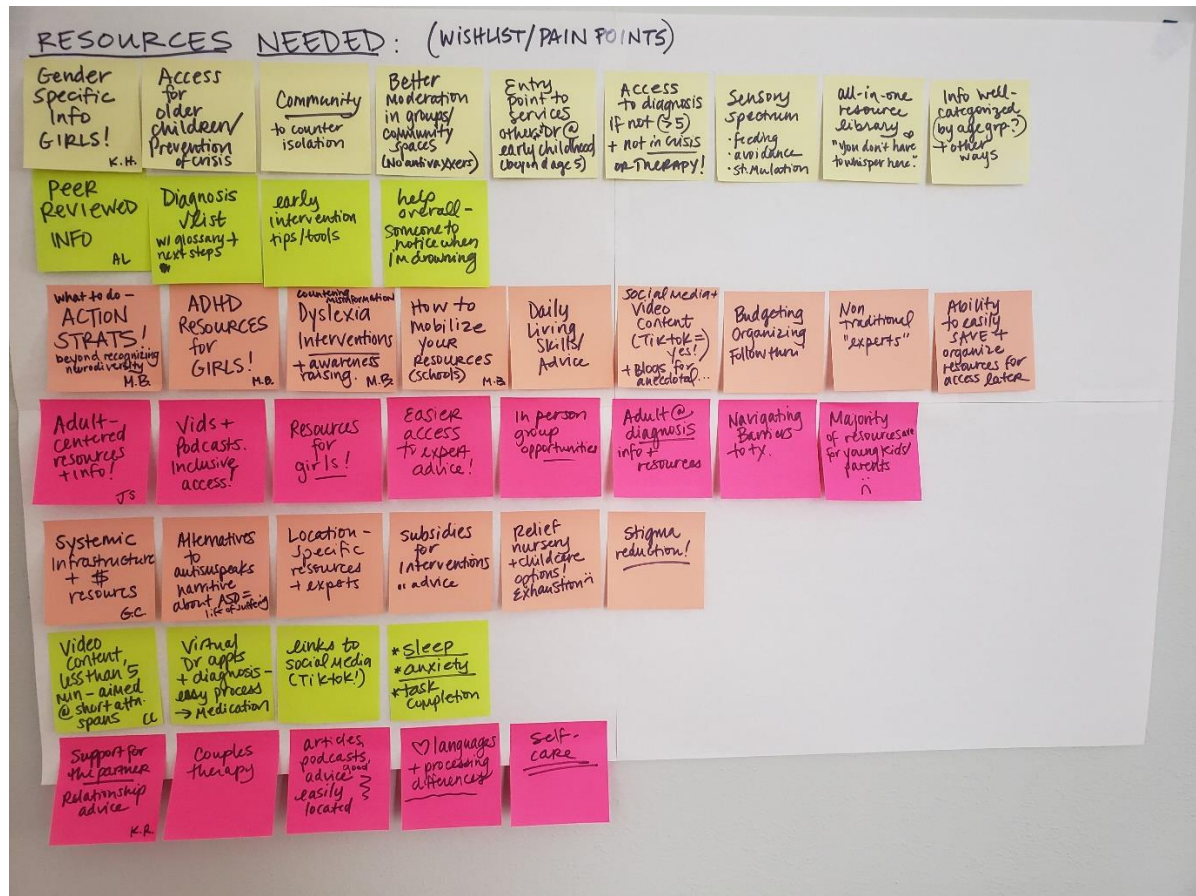 RESOURCES NEEDED: (WISHLIST/PAIN POINTS)
Gender
Specific
Info
GIRLS!
K.H.
Access
for
older
children/
Prevention
of crisis
Community
to counter
isolation
Better
Moderation
in groups/
community
spaces
(No antivaxxers)
Entry
point to
services
other DR @
early childhood
(beyond age 5)
Access
to diagnosis
if not (>5)
+ not in crisis
or THERAPY!
Sensory
Spectrum
· feeding
· avoidance
· stimulation
all-in-one
resource
library
"You don't have
to whisper here."
Info well-
categorized
(by age grp?)
+ other
ways
PEER
REVIEWED
INFO
AL
Diagnosis
✓list
w/ glossary +
next steps
early
intervention
tips/tools
help
overall-
someone to
notice when
I'm drowning
what to do -
ACTION
STRATS!
beyond recognizing
neurodiversity
M.B.
ADHD
RESOURCES
for
GIRLS!
M.B.
countering misinformation
Dyslexia
Interventions
+ awareness
raising.
M.B.
How to
mobilize
your
RESOURCES
(schools)
M.B
Daily
Living
Skills/
Advice
Social Media +
Video
Content
(Tiktok =
yes!)
+ Blogs for
anecdotal...
Budgeting
Organizing
Follow thru
Non
Traditional
"experts"
Ability
to easily
SAVE +
organize
resources for
access later
Adult-
centered
resources
+ info!
JS
Vids +
Podcasts.
Inclusive
access!
Resources
for
girls!
EASIER
access
to expert
advice!
In person
group
opportunities
Adult @
diagnosis
info +
resources
Navigating
Barriers
to tx.
Majority
of resources are
for young kids/
parents
Systemic
Infrastructure
+ $
resources
G.C.
Alternatives
to
autismspeaks
narritive
about ASD =
life of suffering
Location-
Specific
resources
+ experts
subsidies
for
Interventions
" advice
Relief
nursery
+ childcare
options!
Exhaustion
Stigma
reduction!
Video
Content,
less than 5
min - aimed
@ short attn.
spans
CL
Virtual
Dr appts
+ diagnosis -
easy process
→ Medication
links to
social Media
(Tiktok!)
*sleep
*anxiety
*task
completion
Support for
the partner
Relationship
advice
K.R.
Couples
therapy
articles,
podcasts,
good
advice
easily
located
♡ languages
+ processing
differences
Self-
care